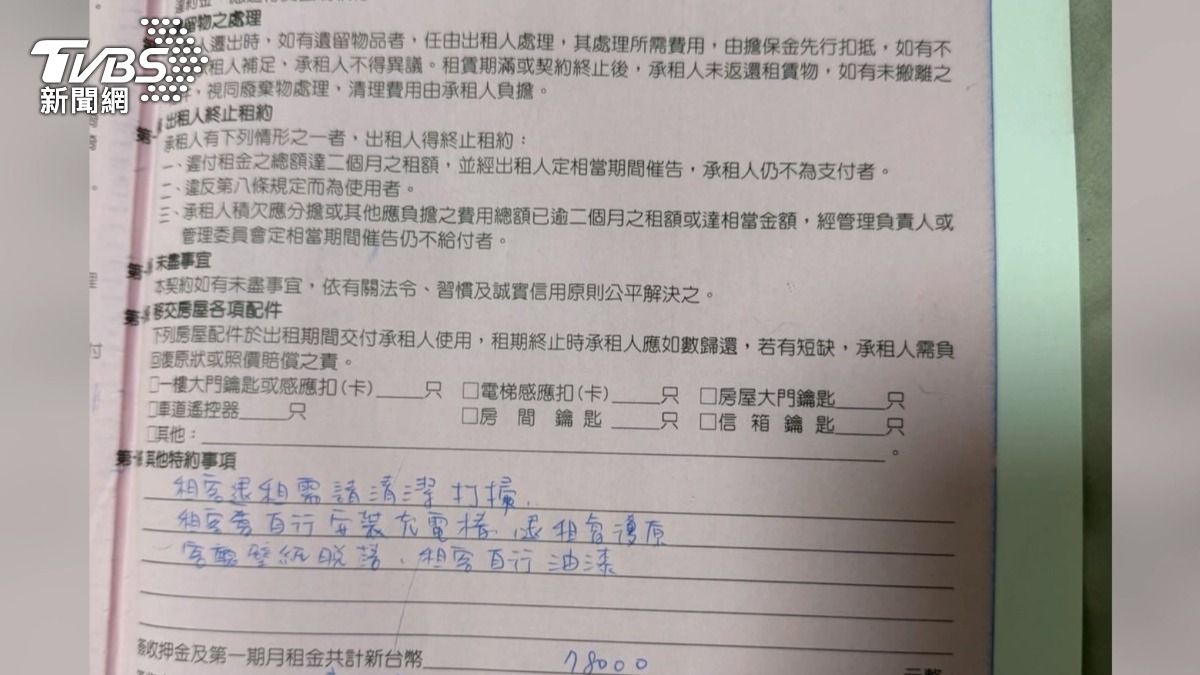 TVBS
新聞網
留物之處理
遷出時，如有遺留物品者，任由出租人處理，其處理所需費用，由擔保金先行扣抵，如有不
租人補足、承租人不得異議。租賃期滿或契約終止後，承租人未返還租賃物，如有未搬離之
視同廢棄物處理，清理費用由承租人負擔。
出租人終止租約
承租人有下列情形之一者，出租人得終止租約：
一、遲付租金之總額達二個月之租額，並經出租人定相當期間催告，承租人仍不為支付者。
二、違反第八條規定而為使用者。
三、承租人積欠應分擔或其他應負擔之費用總額已逾二個月之租額或達相當金額，經管理負責人或
管理委員會定相當期間催告仍不給付者。
未盡事宜
本契約如有未盡事宜，依有關法令、習慣及誠實信用原則公平解決之。
移交房屋各項配件
下列房屋配件於出租期間交付承租人使用，租期終止時承租人應如數歸還，若有短缺，承租人需負
回復原狀或照價賠償之責。
□一樓大門鑰匙或感應扣(卡)____只 □電梯感應扣(卡)____只 □房屋大門鑰匙____只
□車道遙控器____只 □房間鑰匙____只 □信箱鑰匙____只
□其他：____。
其他特約事項
租客退租需請清潔打掃.
租客需自行安裝充電樁.退租需復原
客廳壁紙脫落、租客自行油漆
簽收押金及第一期月租金共計新台幣 78000